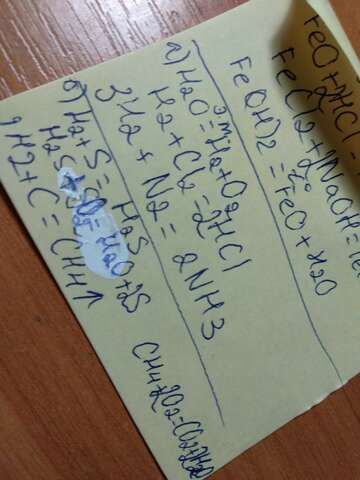 FeO+2HCl=
FeCl2+2NaOH=
Fe(OH)2 = FeO + H2O
а) H2O = H2+O2
H2 + Cl2 = 2HCl
3H2 + N2 = 2NH3
б) H2+S = H2S
H2O+2S
2H2+C = CH4↑
CH4+2O2=CO2+2H2O